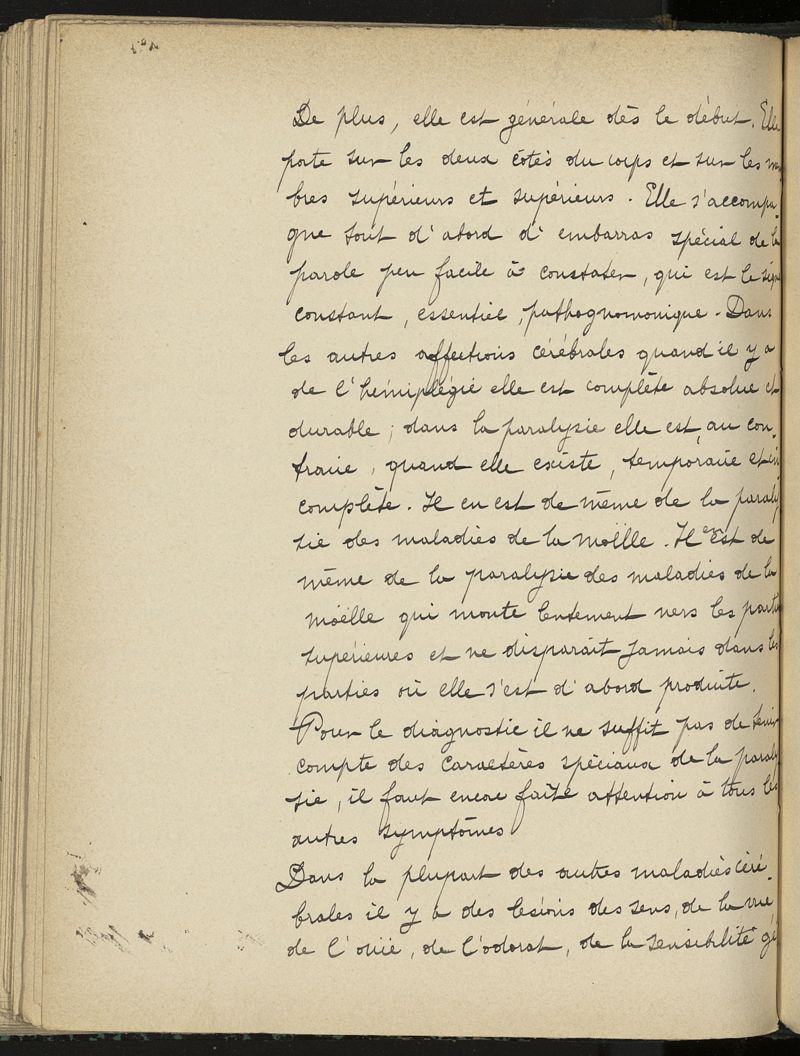 De plus, elle est générale dès le début. Elle
porte sur les deux côtés du corps et sur les mem
bres supérieurs et supérieurs. Elle s'accompa-
gne tout d'abord d'embarras spécial de la
parole peu facile à constater, qui est le signe
constant, essentiel, pathognomonique. Dans
les autres affections cérébrales quand il y a
de l'hémiplégie elle est complète absolue et
durable ; dans la paralysie elle est, au con-
traire, quand elle existe, temporaire et in
complète. Il en est de même de la paraly
sie des maladies de la moëlle. Il en est de
même de la paralysie des maladies de la
moëlle qui monte lentement vers les parties
supérieures et ne disparaît jamais dans les
parties où elle s'est d'abord produite.
Pour le diagnostic il ne suffit pas de tenir
compte des caractères spéciaux de la paraly
sie, il faut encore faite attention à tous les
autres symptômes
Dans la plupart des autres maladies céré-
brales il y a des lésions des sens, de la vue
de l'ouïe, de l'odorat, de la sensibilité gé